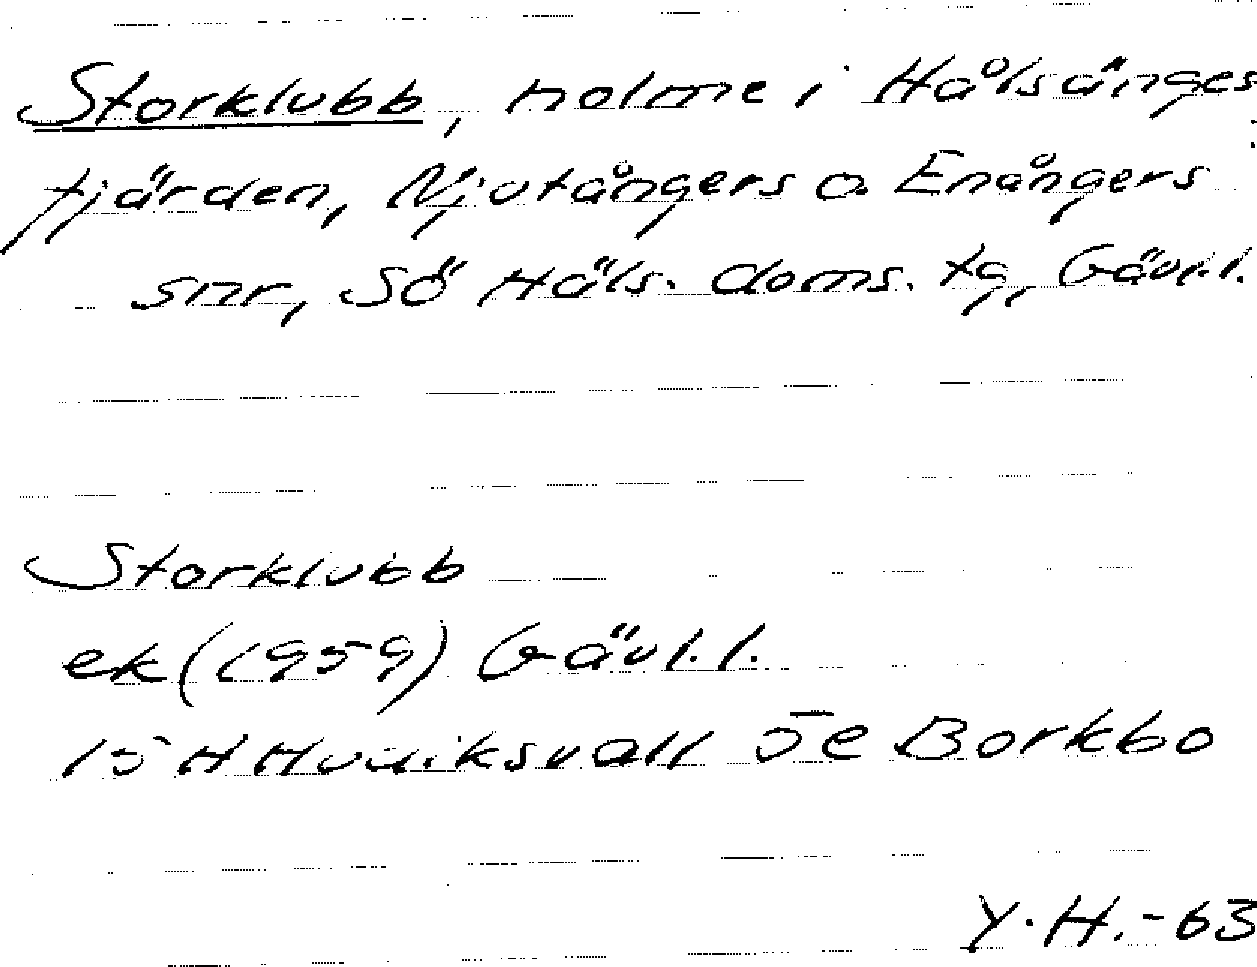 Storklubb, holme i Hålsänges
fjärden, Njutångers o. Enångers
snr, Sö Häls. doms. tg, Gävl.l.
Storklubb
ek (1959) Gävl.l.
15H Hudiksvall 5e Borkbo
Y.H.-63